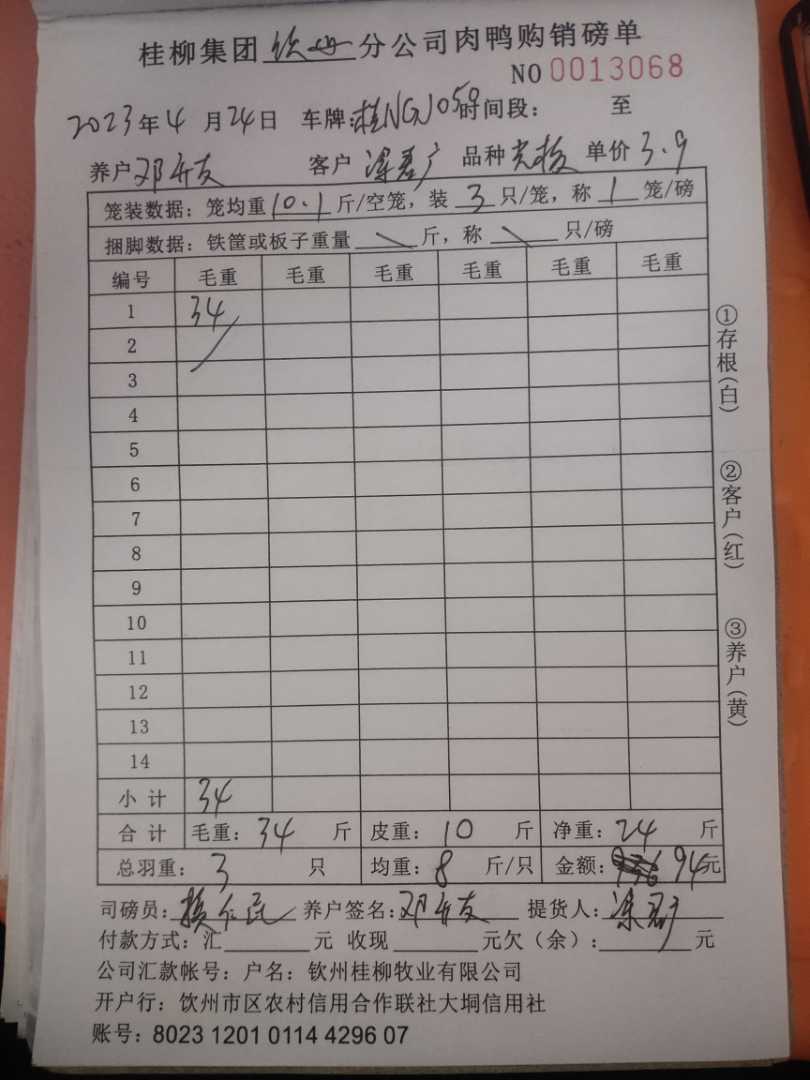 桂柳集团 钦州 分公司肉鸭购销磅单
NO 0013068
2023年4月24日 车牌:桂NGJ050 时间段: 至
养户 邓 友 客户 品种 单价 3.9
笼装数据: 笼均重 10.1 斤/空笼, 装 3 只/笼, 称 1 笼/磅
捆脚数据: 铁筐或板子重量 斤, 称 只/磅
编号 毛重 毛重 毛重 毛重 毛重 毛重
1 34
2
3
4
5
6
7
8
9
10
11
12
13
14
小计 34
合计 毛重: 34 斤 皮重: 10 斤 净重: 24 斤
总羽重: 3 只 均重: 8 斤/只 金额: 94元
司磅员: 养户签名: 邓 友 提货人:
付款方式: 汇 元 收现 元欠(余): 元
公司汇款帐号: 户名: 钦州桂柳牧业有限公司
开户行: 钦州市区农村信用合作联社大垌信用社
账号: 8023 1201 0114 4296 07
①存根(白)
②客户(红)
③养户(黄)